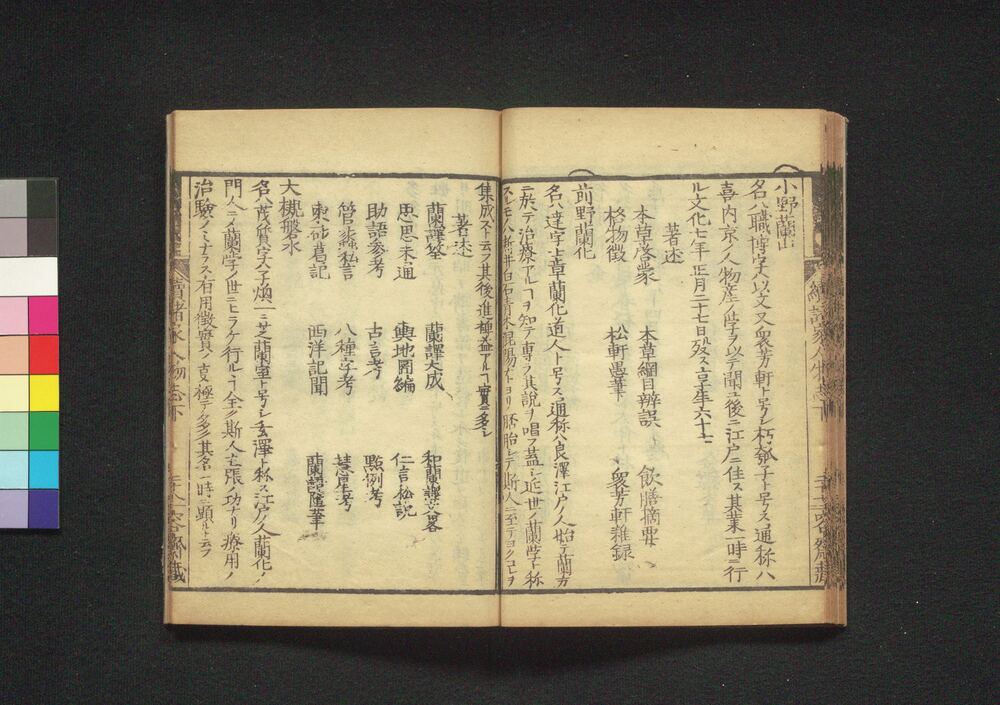 小野蘭山
名ハ職博字ハ以文又衆芳軒ト号シ朽匏子ト号ス通称ハ
喜内京ノ人物産ノ学ヲ以テ聞ユ後ニ江戸ニ住ス其業一時ニ行
ル文化七年正月二十七日歿ス享年六十七
著述
本草啓蒙 本草綱目辨誤 飲膳摘要
格物徴 松軒愚筆 衆芳軒雜録
前野蘭化
名ハ達字ハ 章蘭化道人ト号ス通称ハ良澤江戸ノ人始テ蘭方
ニ於テ治療アルヿヲ知テ専ラ其説ヲ唱フ蓋シ近世ノ蘭学ト称
スルモノハ 白石青木昆陽 ヨリ胚胎シテ斯人ニ至テヨクコレヲ
集成スト云フ其後進 益アルヿ實ニ多シ
著述
蘭譯筌 蘭譯大成 和蘭譯文畧
思思未通 輿地圖編 仁言私説
助語参考 古言考 點例考
管蠡私言 八種字考 慧星考
東砂葛記 西洋記聞 蘭語随筆
大槻磐水
名ハ茂質字ハ子煥一ニ芝蘭室ト号シ玄澤ト称ス江戸ノ人蘭化ノ
門人ニメ蘭学ノ世ニヒラケ行ルヿ全ク斯人主張ノ功ナリ療用ノ
治験ノミナラス有用徴實ノ 極テ多ク其名一時ニ顕ルト云フ
續諸家人物志下